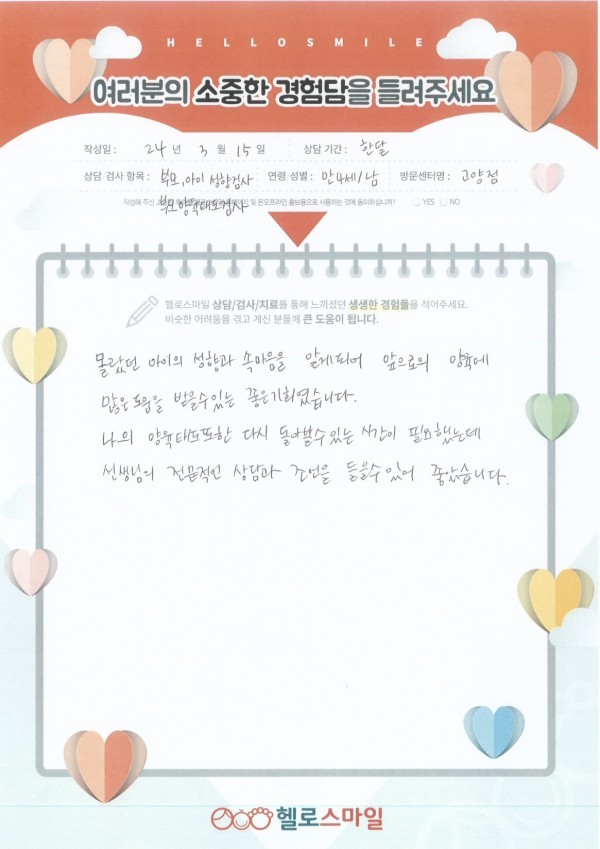 HELLOSMILE
여러분의 소중한 경험담을 들려주세요
작성일 : 24 년 3 월 15 일 상담 기간 : 한달
상담 검사 항목 : 부모,아이 성향검사 연령/성별 : 만4세/남 방문센터명 : 고양점
부모양육태도검사
작성해 주신 및 온오프라인 홍보용으로 사용하는 것에 동의하십니까? YES NO
헬로스마일 상담/검사/치료를 통해 느끼셨던 생생한 경험들을 적어주세요.
비슷한 어려움을 겪고 계신 분들께 큰 도움이 됩니다.
몰랐던 아이의 성향과 속마음을 알게되어 앞으로의 양육에
많은 도움을 받을수있는 좋은기회였습니다.
나의 양육태도또한 다시 돌아볼수있는 시간이 필요했는데
선생님의 전문적인 상담과 조언을 들을수있어 좋았습니다.
헬로스마일